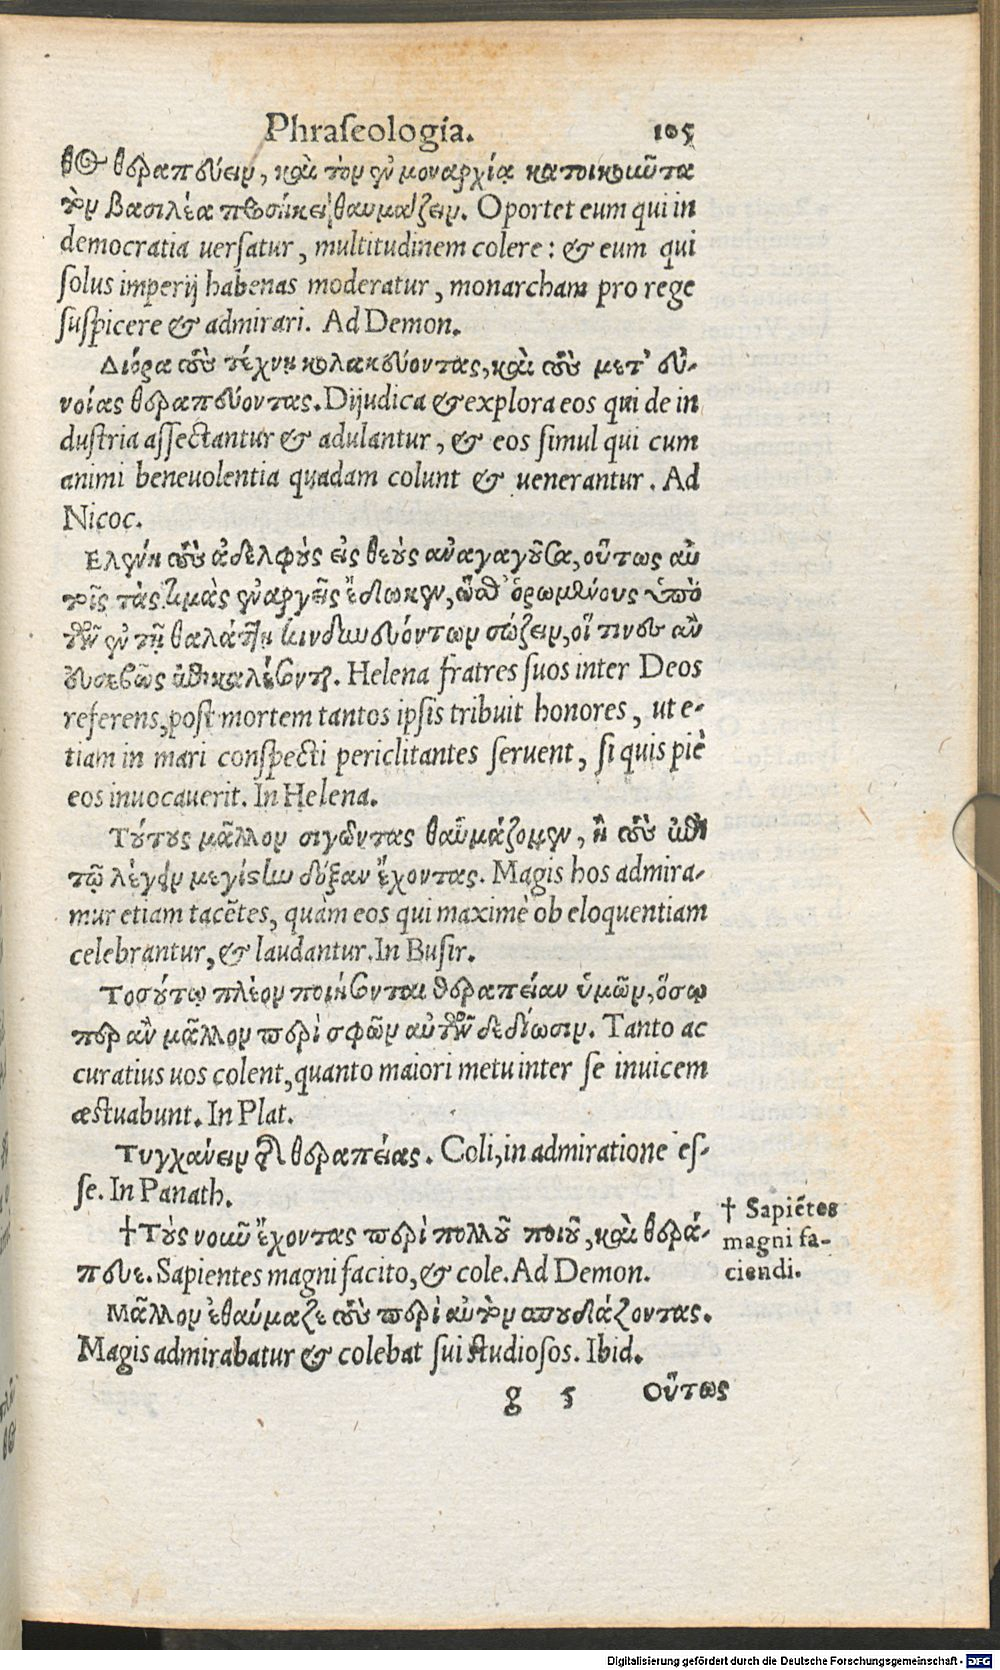 Phraseologia. 105
θος θεραπεύειν, καὶ τὸν ἐν μοναρχίᾳ κατοικοῦντα
τὸν βασιλέα προσήκει θαυμάζειν. Oportet eum qui in
democratia uersatur, multitudinem colere: & eum qui
solus imperij habenas moderatur, monarcham pro rege
suspicere & admirari. Ad Demon.
Διόρα τοὺς τέχνῃ κολακεύοντας, καὶ τοὺς μετ' εὐ-
νοίας θεραπεύοντας. Dijudica & explora eos qui de in
dustria assectantur & adulantur, & eos simul qui cum
animi beneuolentia quadam colunt & uenerantur. Ad
Nicoc.
Ελένη τοὺς ἀδελφοὺς εἰς θεοὺς ἀναγαγοῦσα, οὕτως αὐ
τοῖς τὰς τιμὰς ἐναργεῖς ἔδωκεν, ὥσθ' ὁρωμένους ὑπὸ
τῶν ἐν τῇ θαλάττῃ κινδυνευόντων σώζειν, οἵ τινες ἂν
εὐσεβῶς ἐπικαλέσωνται. Helena fratres suos inter Deos
referens, post mortem tantos ipsis tribuit honores, ut e-
tiam in mari conspecti periclitantes seruent, si quis piè
eos inuocauerit. In Helena.
Τούτους μᾶλλον σιγῶντας θαυμάζομεν, ἢ τοὺς ἐπὶ
τῷ λέγειν μεγίστην δόξαν ἔχοντας. Magis hos admira-
mur etiam tacẽtes, quàm eos qui maximè ob eloquentiam
celebrantur, & laudantur. In Busir.
Τοσούτῳ πλέον ποιήσονται θεραπείαν ὑμῶν, ὅσῳ
περ ἂν μᾶλλον περὶ σφῶν αὐτῶν δεδίωσιν. Tanto ac
curatius uos colent, quanto maiori metu inter se inuicem
æstuabunt. In Plat.
Τυγχάνειν τῆς θεραπείας. Coli, in admiratione es-
se. In Panath.
† Τοὺς νοῦν ἔχοντας περὶ πολλοῦ ποιοῦ, καὶ θερά-
πευε. Sapientes magni facito, & cole. Ad Demon.
† Sapiẽtes
magni fa-
ciendi.
Μᾶλλον ἐθαύμαζε τοὺς περὶ αὐτὸν σπουδάζοντας.
Magis admirabatur & colebat sui studiosos. Ibid.
g 5 Οὕτως
Digitalisierung gefördert durch die Deutsche Forschungsgemeinschaft - DFG